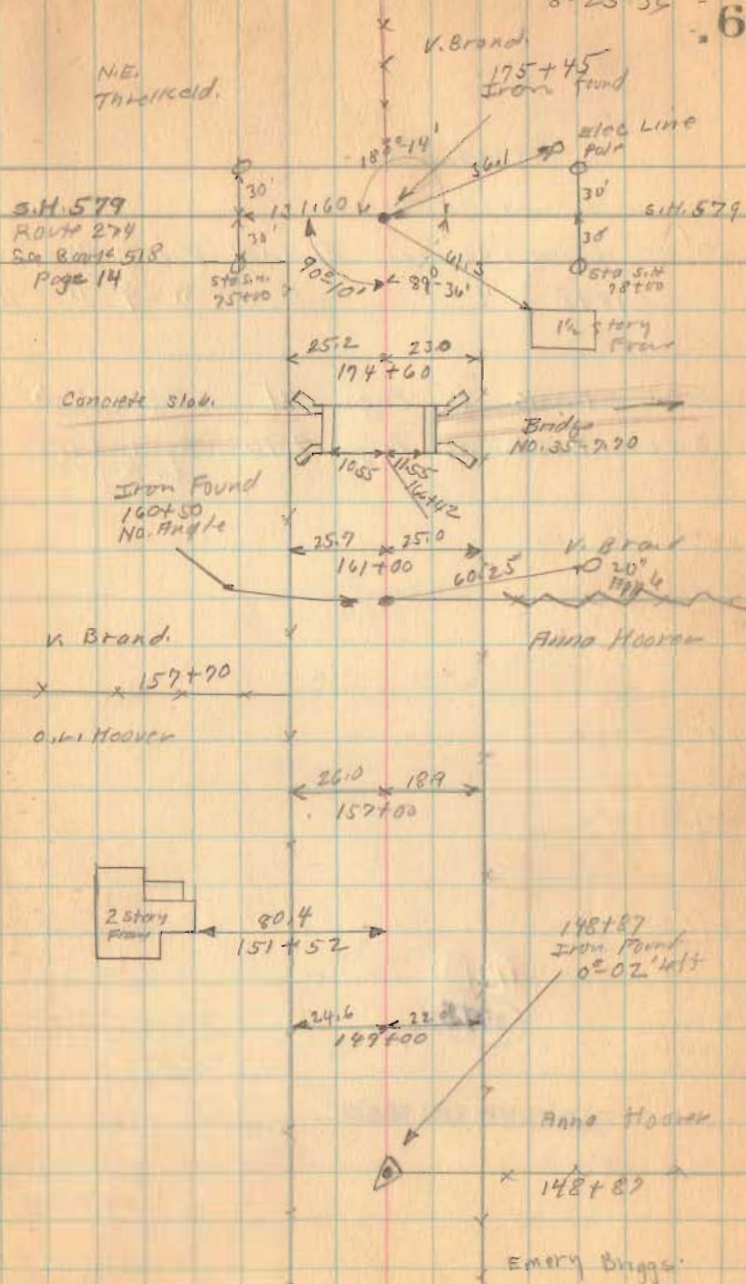 6
V. Brand.
N.E.
Threlkeld.
175+45
Iron Found
Elec Line
Pole
36.1
30'
30'
S.H. 579
Route 274
Page 14
131.60
30'
30'
S.H. 579
Sta S.H.
75+00
90°-10'
89°-36'
41.3
Sta S.H
78+00
1½ story
Frame
25.2
23.0
174+60
Concrete slab.
Bridge
NO. 35-7.70
10.55
11.55
Iron Found
160+50
No. Angle
25.7
25.0
161+00
60.25
V. Brand
20"
Apple
V. Brand.
Anna Hoover
157+70
O.L. Hoover
26.0
18.9
157+00
2 Story
Frame
80.4
151+52
148+87
Iron Found
0°-02' left
24.6
22.0
149+00
Anna Hoover
148+87
Emery Briggs.